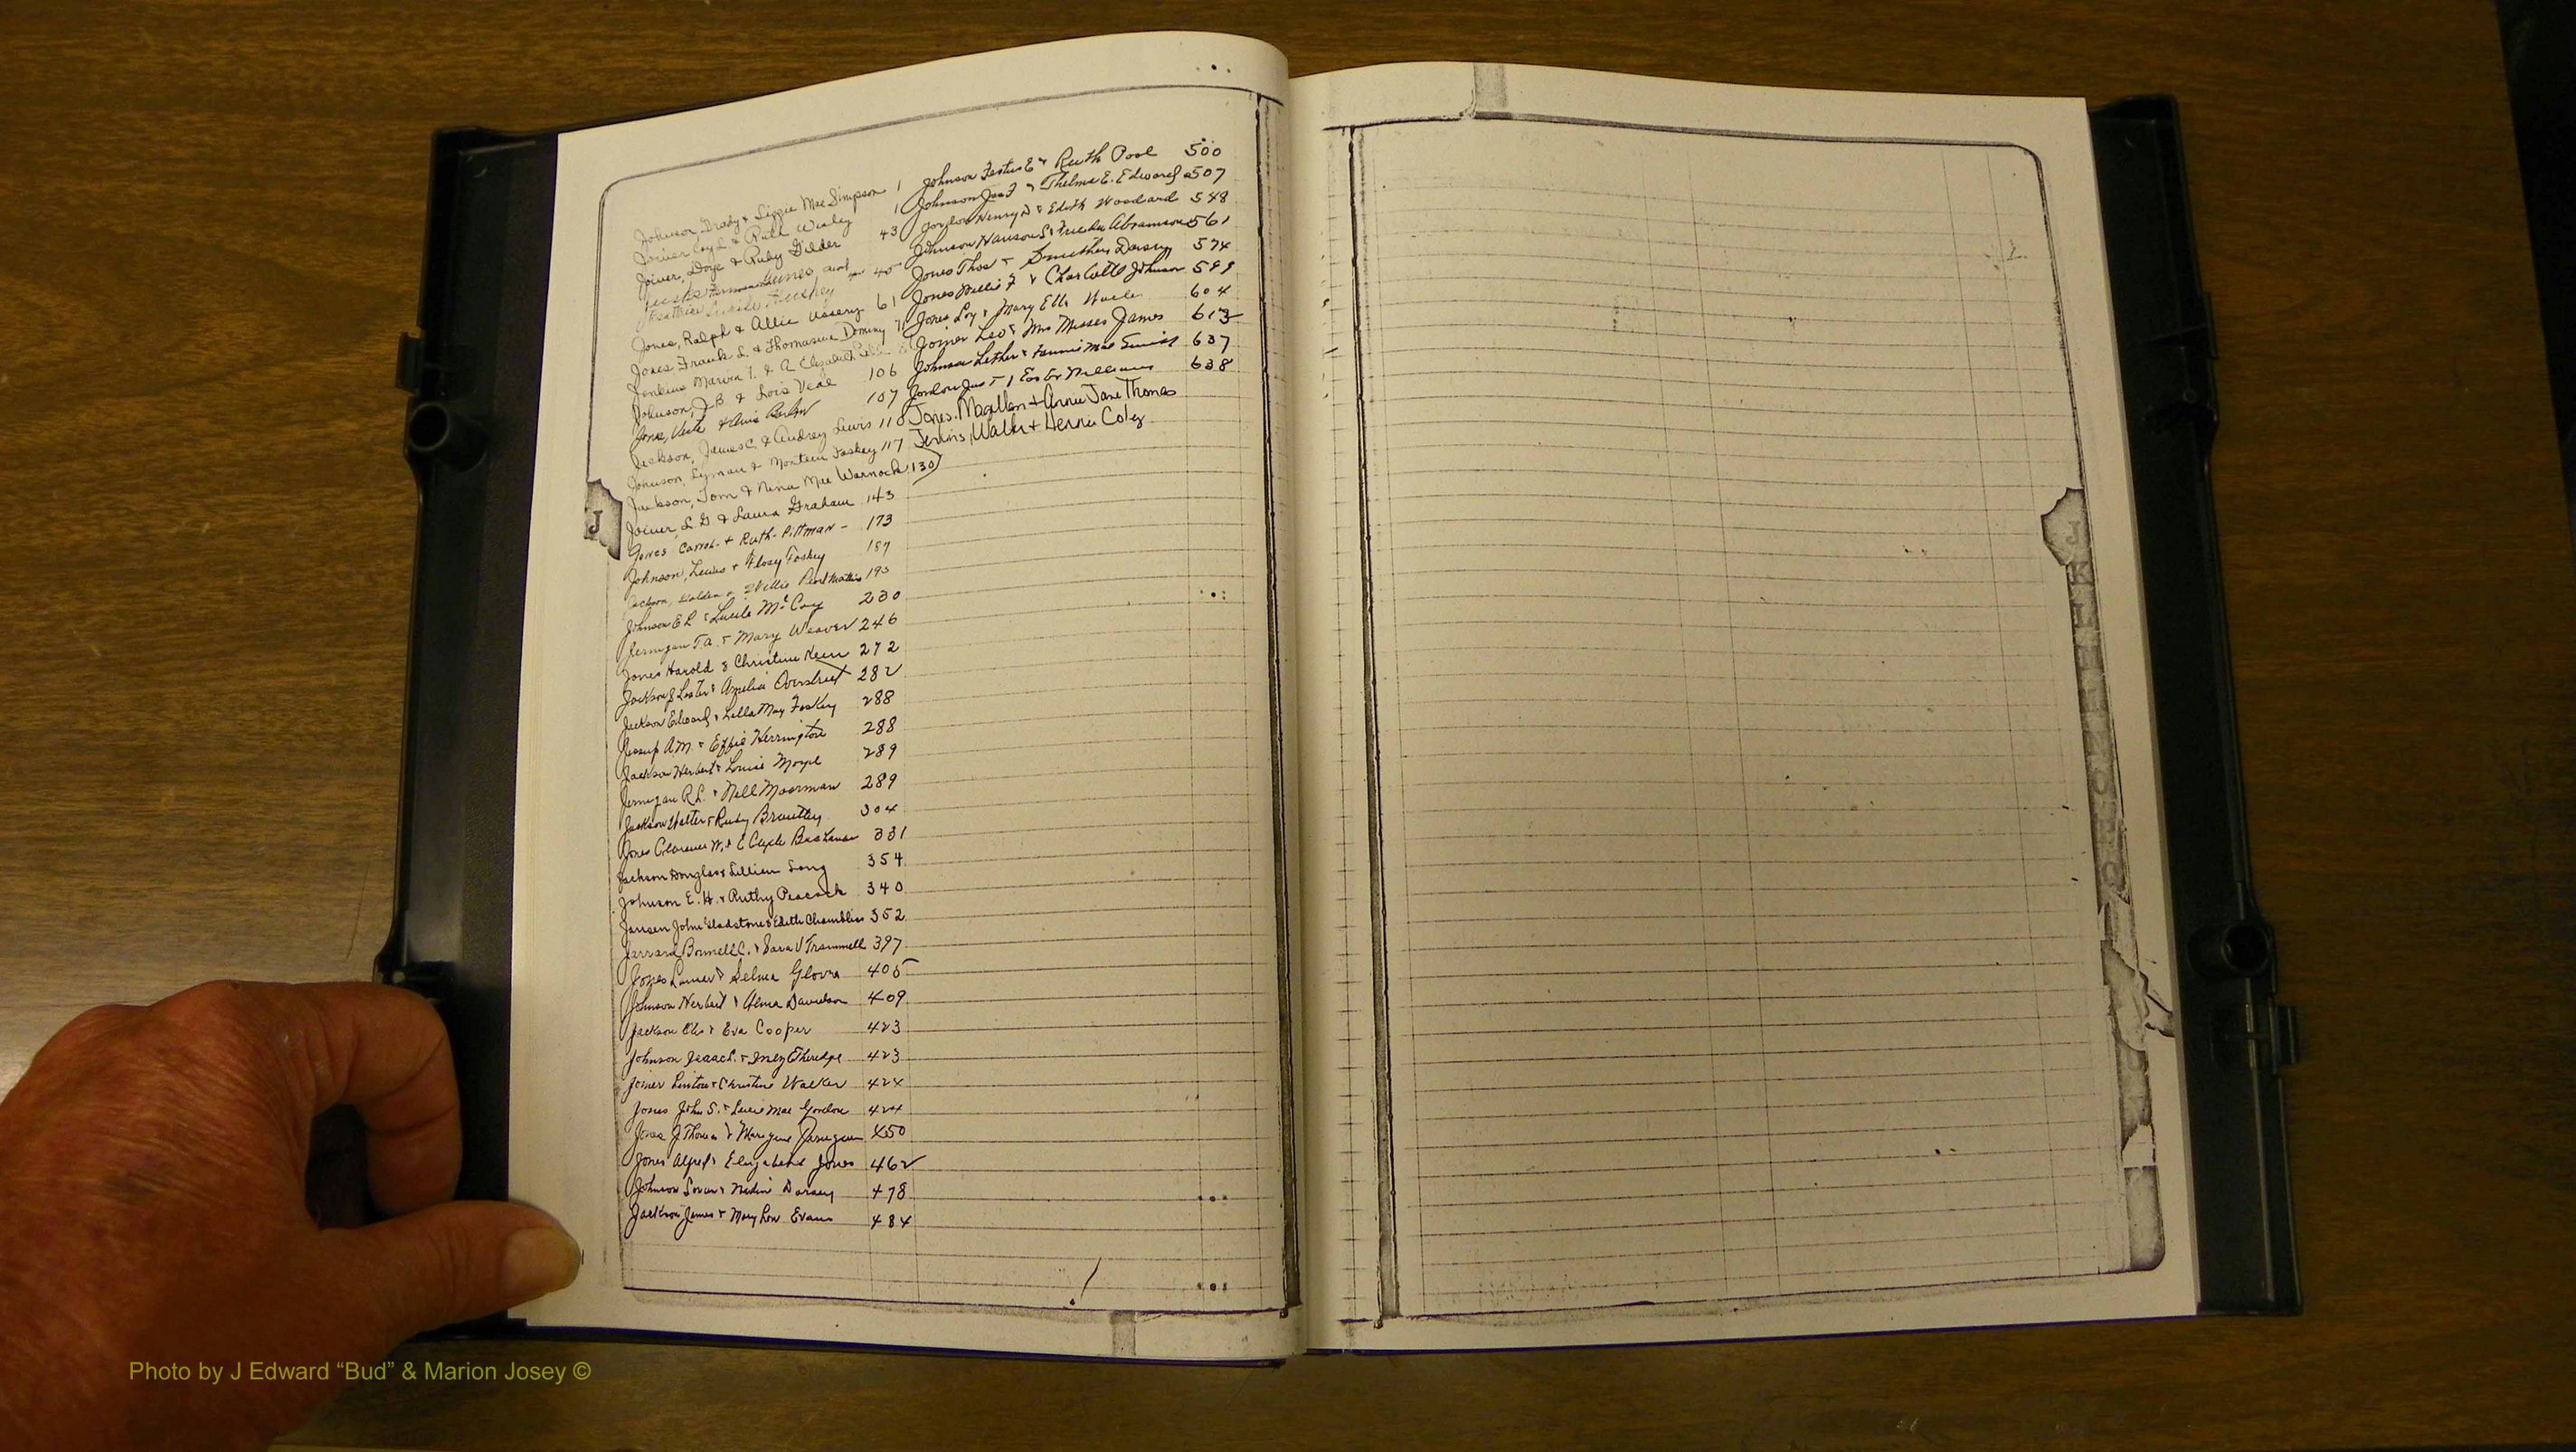 Johnson, Brady & Lizzie Mae Simpson 1
Joiner Coy L. & Ruth Wesley 1
Joiner, Doye & Ruby Gilder 43
James, and 45
Beatrice
Jones, Ralph & Allie Ussery 61
Jones Frank L. & Thomasine Dominy 71
Jenkins Marvin T. & A. Elizabeth
Johnson, J.B. & Lois Veal 106
Jones, & 107
Jackson, James C. & Audrey Lewis 110
Johnson, Lyman & Monteen Foskey 117
Jackson, Tom & Nena Mae Warnock 130
Joiner, L. G. & Laura Graham 143
Jones Carrol + Ruth Pittman - 173
Johnson, Lewis + Flosy Foskey 187
Jackson, Holden & Willie Pearl Mathis 193
Johnson E R & Lucile McCoy 230
Jernigan T.A. & Mary Weaver 246
Jones Harold & Christine Keen 272
Jackson J Lester & Amelia Overstreet 282
Jackson Edward & Lella May Foskey 288
Jessup A.M. & Effie Herrington 288
Jackson Herbert & Louise 289
Jernigan R.L. & Nell Moorman 289
Jackson Walter & Ruby Brantley 304
Jones Clarence W. & C Clyde 331
Jackson Douglas & Lillian Long 354
Johnson E. H. & Ruthy Peacock 340
John Gladstone & Edith Chambliss 352
Jarrard Bonnell C. & Sara V Trammell 397
Jones Lamar & Selma Glover 405
Johnson Herbert & Alma Davidson 409
Jackson & Eva Cooper 423
Johnson Isaac L. & Inez Etheredge 423
Joiner Linton & Christine Walker 424
Jones John S. & Lucie Mae Gordon 424
Jones J Thomas & 450
Jones Alfred & Elizabeth Jones 462
Johnson & Nadine Dorsey 478
Jackson James & Mary Lou Evans 484
Johnson Festus E & Ruth Pool 500
Johnson Jas F & Thelma E. Edwards 507
Jordon Henry D & Edith Woodard 548
Johnson Harrison S & Frieda Abramson 561
Jones Thos & Smithey Dorsey 574
Jones Willie F & Charlotte Johnson 599
Jones Loy & Mary Ella 604
Joiner Leo & Mrs Misses James 613
Johnson Lether & Fannie Mae 637
Jordon Gus & Easter Williams 638
Jones, Magellan + Annie Jane Thomas
Jenkins, Walter + Hennie Coley
J
J
K
L
Photo by J Edward “Bud” & Marion Josey ©